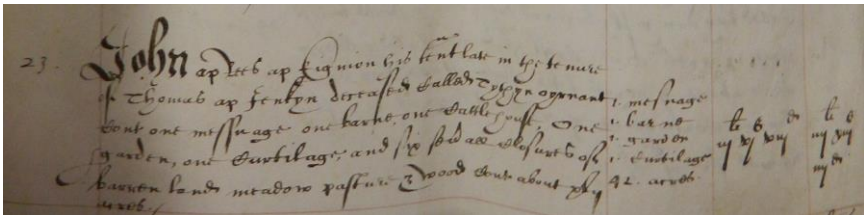 23. John ap Rees ap Kignion his tent late in the tenure
of Thomas ap Jenkyn deceased Called Tythyn
Cont one messuage one barne one Cattle house, One
garden, one Curtilage, and six severall Closures of
barren land meadow pasture & wood Cont about
acres.
1. mesuage
1. barne
1. garden
1. Curtilage
42. acres